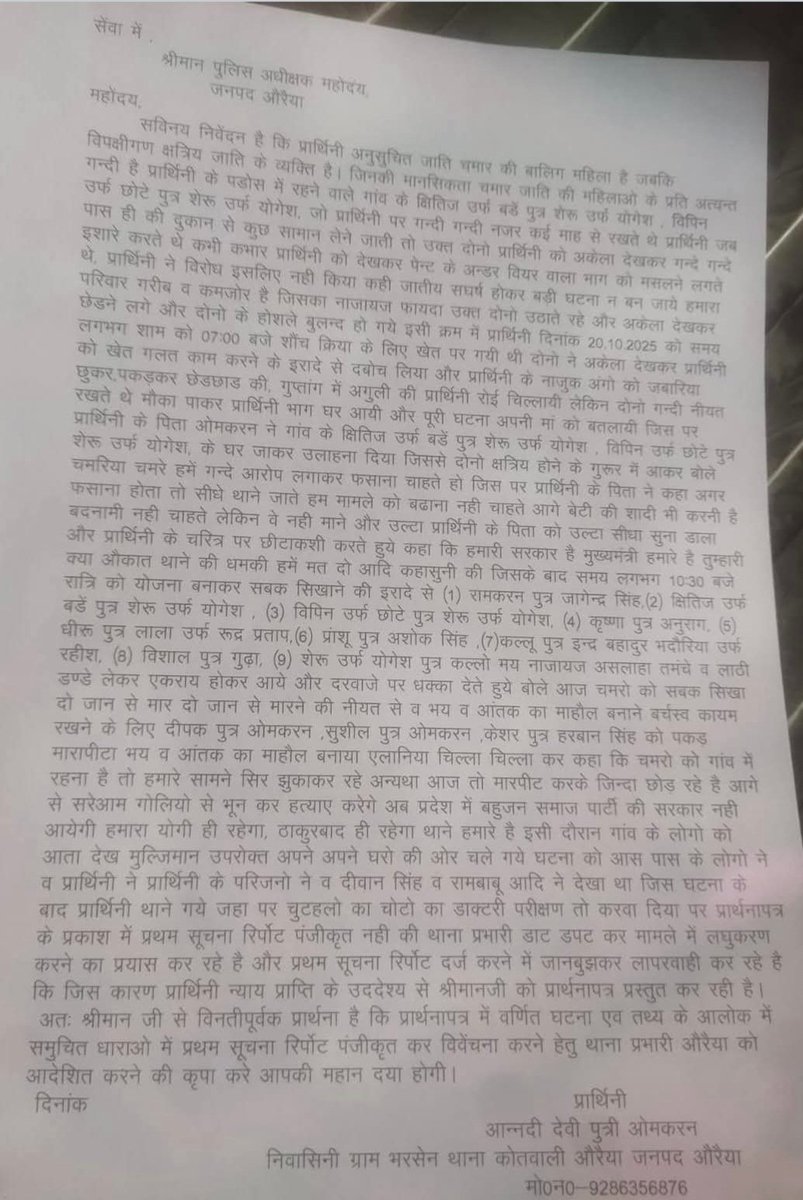 सेंवा में ,
श्रीमान पुलिस अधीक्षक महोदय,
जनपद औरैया
महोंदय,
सविनय निवेंदन है कि प्रार्थिनी अनुसुचित जाति चमार की बालिग महिला है जबकि
विपक्षीगण क्षत्रिय जाति के व्यक्ति है। जिनकी मानसिकता चमार जाति की महिलाओ के प्रति अत्यन्त
गन्दी है प्रार्थिनी के पडोस में रहने वाले गांव के क्षितिज उर्फ बडें पुत्र शेरू उर्फ योगेश , विपिन
उर्फ छोटे पुत्र शेरू उर्फ योगेश, जो प्रार्थिनी पर गन्दी गन्दी नजर कई माह से रखते थे प्रार्थिनी जब
पास ही की दुकान से कुछ सामान लेने जाली तो उक्त दोनो प्रार्थिनी को अकेला देखकर गन्दे गन्दे
इशारे करते थे कभी कभार प्रार्थिनी को देखकर पेन्ट के अन्डर वियर वाला भाग को मसलने लगते
थे, प्रार्थिनी ने विरोध इसलिए नही किया कही जातीय सघर्ष होकर बड़ी घटना न बन जाये हमारा
परिवार गरीब व कमजोर है जिसका नाजायज फायदा उक्त दोनो उठाते रहे और अकेला देखकर
छेडने लगे और दोनो के होशले बुलन्द हो गये इसी क्रम में प्रार्थिनी दिनांक 20.10.2025 को समय
लगभग शाम को 07:00 बजे शौंच क्रिया के लिए खेत पर गयी थी दोनो ने अकेला देखकर प्रार्थिनी
को खेत गलत काम करने के इरादे से दबोच लिया और प्रार्थिनी के नाजुक अंगो को जबारिया
छुकर,पकड़कर छेडछाड की, गुप्तांग में अगुली की प्रार्थिनी रोई चिल्लायी लेकिन दोनो गन्दी नीयत
रखते थे मौका पाकर प्रार्थिनी भाग घर आयी और पूरी घटना अपनी मां को बतलायी जिस पर
प्रार्थिनी के पिता ओमकरन ने गांव के क्षितिज उर्फ बडें पुत्र शेरू उर्फ योगेश , विपिन उर्फ छोटे पुत्र
शेरू उर्फ योगेश, के घर जाकर उलाहना दिया जिससे दोनो क्षत्रिय होने के गुरूर में आकर बोले
चमरिया चमरे हमें गन्दे आरोप लगाकर फसाना चाहते हो जिस पर प्रार्थिनी के पिता ने कहा अगर
फसाना होता तो सीधे थाने जाते हम मामले को बढाना नही चाहते आगे बेटी की शादी भी करनी है
बदनामी नही चाहते लेकिन वे नही माने और उल्टा प्रार्थिनी के पिता को उल्टा सीधा सुना डाला
और प्रार्थिनी के चरित्र पर छीटाकशी करते हुये कहा कि हमारी सरकार है मुख्यमंत्री हमारे है तुम्हारी
क्या औकात थाने की धमकी हमें मत दो आदि कहासुनी की जिसके बाद समय लगभग 10:30 बजे
रात्रि को योजना बनाकर सबक सिखाने की इरादे से (1) रामकरन पुत्र जागेन्द्र सिंह,(2) क्षितिज उर्फ
बडें पुत्र शेरू उर्फ योगेश , (3) विपिन उर्फ छोटे पुत्र शेरू उर्फ योगेश, (4) कृष्णा पुत्र अनुराग, (5)
धीरू पुत्र लाला उर्फ रूद्र प्रताप,(6) प्रांशू पुत्र अशोक सिंह ,(7)कल्लू पुत्र इन्द्र बहादुर भदौरिया उर्फ
रहीश, (8) विशाल पुत्र गुढ़ा, (9) शेरू उर्फ योगेश पुत्र कल्लो मय नाजायज असलाहा तमंचे व लाठी
डण्डे लेकर एकराय होकर आये और दरवाजे पर धक्का देते हुये बोले आज चमरो को सबक सिखा
दो जान से मार दो जान से मारने की नीयत से व भय व आंतक का माहौल बनाने बर्चस्व कायम
रखने के लिए दीपक पुत्र ओमकरन ,सुशील पुत्र ओमकरन ,केशर पुत्र हरबान सिंह को पकड़
मारापीटा भय व आंतक का माहौल बनाया एलानिया चिल्ला चिल्ला कर कहा कि चमरो को गांव में
रहना है तो हमारे सामने सिर झुकाकर रहे अन्यथा आज तो मारपीट करके जिन्दा छोड़ रहे है आगे
से सरेआम गोलियो से भून कर हत्याए करेगे अब प्रदेश में बहुजन समाज पार्टी की सरकार नही
आयेगी हमारा योगी ही रहेगा, ठाकुरबाद ही रहेगा थाने हमारे है इसी दौरान गांव के लोगो को
आता देख मुल्जिमान उपरोक्त अपने अपने घरो की ओर चले गये घटना को आस पास के लोगो ने
व प्रार्थिनी ने प्रार्थिनी के परिजनो ने व दीवान सिंह व रामबाबू आदि ने देखा था जिस घटना के
बाद प्रार्थिनी थाने गये जहा पर चुटहलो का चोटो का डाक्टरी परीक्षण तो करवा दिया पर प्रार्थनापत्र
के प्रकाश में प्रथम सूचना रिर्पोट पंजीकृत नही की थाना प्रभारी डाट डपट कर मामले में लघुकरण
करने का प्रयास कर रहे है और प्रथम सूचना रिर्पोट दर्ज करने में जानबुझकर लापरवाही कर रहे है
कि जिस कारण प्रार्थिनी न्याय प्राप्ति के उददेश्य से श्रीमानजी को प्रार्थनापत्र प्रस्तुत कर रही है।
अतः श्रीमान जी से विनतीपूर्वक प्रार्थना है कि प्रार्थनापत्र में वर्णित घटना एव तथ्य के आलोक में
समुचित धाराओ में प्रथम सूचना रिर्पोट पंजीकृत कर विवेंचना करने हेतु थाना प्रभारी औरैया को
आदेशित करने की कृपा करे आपकी महान दया होगी।
दिनांक
प्रार्थिनी
आन्नदी देवी पुत्री ओमकरन
निवासिनी ग्राम भरसेन थाना कोतवाली औरैया जनपद औरैया
मो0न0–9286356876